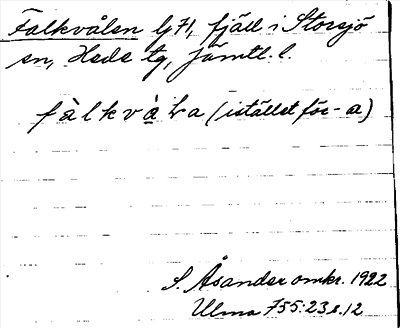 Falkvålen lj 71, fjäll i Storsjö
sn, Hede tg, Jämtl. l.
fàlkvàLa (istället för -a)
S. Åsander omkr. 1922
Ulma 755:23 s. 12